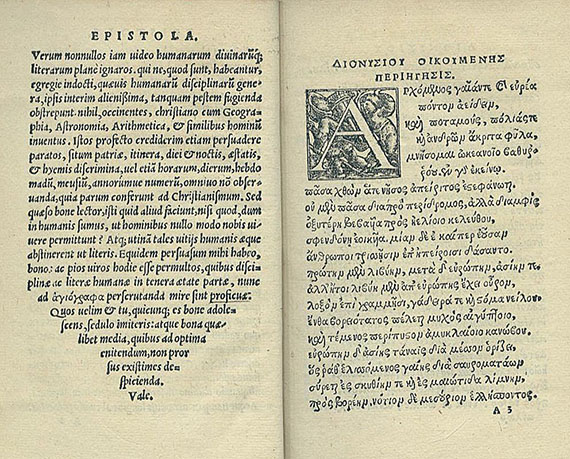 EPISTOLA.
Verum nonnullos iam uideo humanarum diuinarūq;
literarum plane ignaros. qui ne, quod sunt, habeantur,
egregie indocti, quæuis humanarū disciplinarū gene
ra, ipsis interim alienissima, tanquam pestem fugienda
obstrepunt: nihil, occinentes, christiano cum Geogra
phia, Astronomia, Arithmetica, & similibus hominū
inuentus. Istos profecto crediderim etiam persuadere
paratos, situm patriæ, itinera, diei & noctis, æstatis,
& hyemis discrimina, uel etiā horarum, dierum, hebdo
madū, mensiū, annorumue numerū, omnino nō obser-
uanda, quia parum conferunt ad Christianismum. Sed
quæso bone lector, isti quid aliud faciunt, nisi quod, dum
inhumanis sumus, ut hominibus nullo modo nobis ui-
uere permittunt? Atq; utinā tales uitijs humanis æque
abstinerent ut literis. Equidem persuasum mihi habeo,
bono: ac pios uiros hodie esse permultos, quibus disci-
plinæ ac literæ humanæ in tenera ætate partæ, nunc
ad ἁγιόγραφα perscrutanda mire sint proficuæ.
Quos uelim & tu, quicunq; es bone adole-
scens, sedulo imiteris: atque bona quæ-
libet media, quibus ad optima
enitendum, non pror
sus existimes de-
spicienda.
Vale.
ΔΙΟΝΥΣΙΟΥ ΟΙΚΟΥΜΕΝΗΣ
ΠΕΡΙΗΓΗΣΙΣ.
Ἀρχόμενος γαῖάν τε καὶ εὐρέα
πόντον ἀείδειν,
καὶ ποταμούς, πόλιάς τε
καὶ ἀνδρῶν ἄκριτα φῦλα,
μνήσομαι ὠκεανοῖο βαθυρ-
ρόου. ἐν γὰρ ἐκείνῳ
πᾶσα χθὼν ἅτε νῆσος ἀπείριτος ἐστεφάνωται.
οὐ μὲν πᾶσα διαπρὸ περίδρομος, ἀλλὰ διαμφὶς
ὀξυτέρη βεβαυῖα πρὸς ἠελίοιο κελεύθους,
σφενδόνῃ εἰοικυῖα. μίαν δέ ἑ καίπερ ἐοῦσαν
ἄνθρωποι τρισσῇσιν ἐπ' ἠπείροισι δάσαντο.
πρώτην μὲν λιβύην, μετὰ δ' εὐρώπην, ἀσίην τε.
ἀλλ' ἤτοι λιβύη μὲν ἀπ' εὐρώπης ἔχει οὖρον,
λοξὸν ἐπὶ γραμμῇσι, γάδειρά τε καὶ στόμα νείλου.
ἔνθα βορειότατος πέλεται μυχὸς αἰγύπτοιο,
καὶ τέμενος περίπυστον ἀμυκλαίοιο κανώβου,
εὐρώπην δ' ἀσίης τάναϊς διὰ μέσσον ὁρίζει,
ὅς ῥά θ' ἑλισσόμενος γαίης διὰ σαυροματάων
σύρεται ἐς σκυθίην τε καὶ ἐς μαιώτιδα λίμνην,
πρὸς βορέην. νότιον δὲ μεσούριον ἑλλήσποντος.
A 3